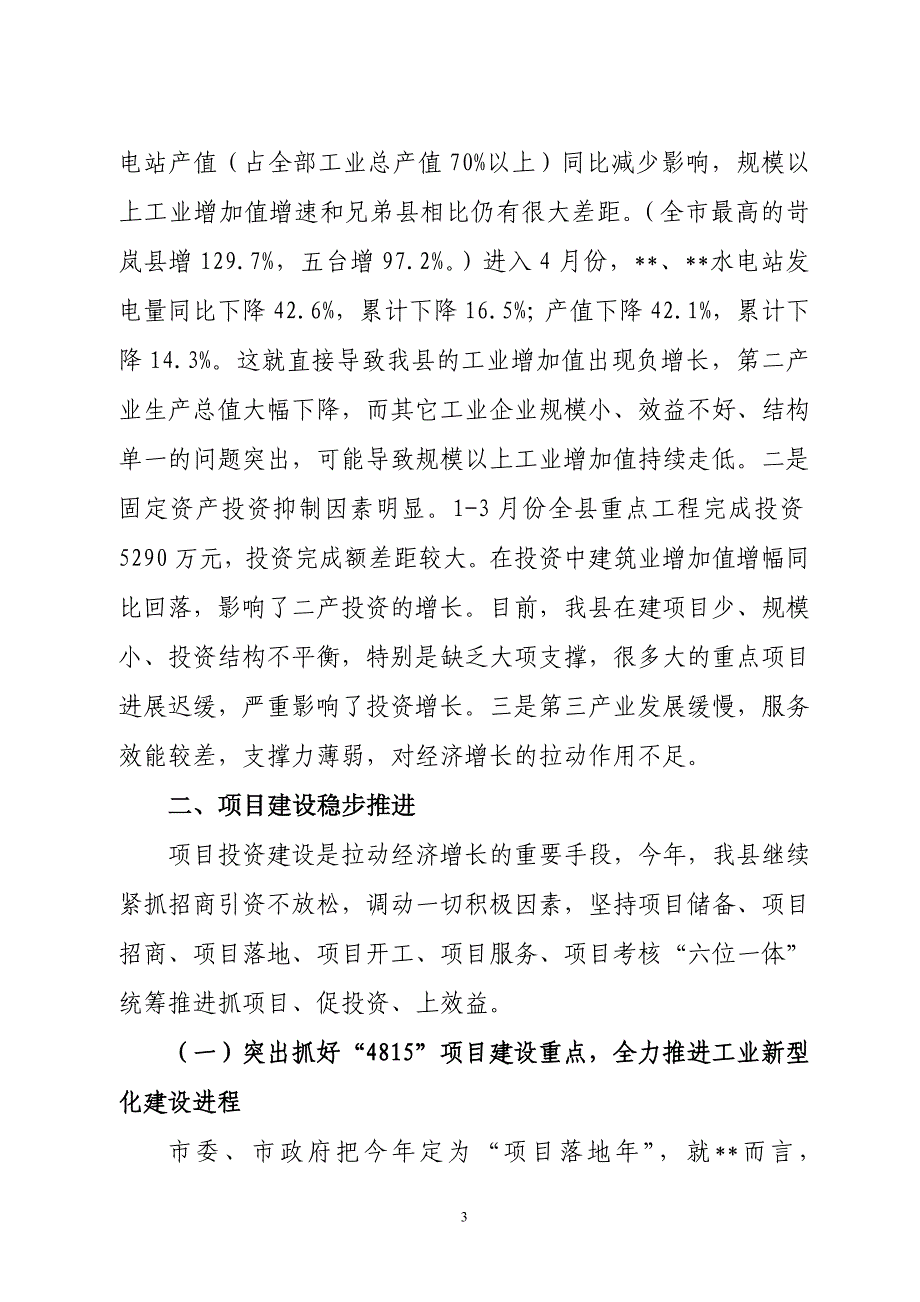 电站产值（占全部工业总产值 70%以上）同比减少影响，规模以
上工业增加值增速和兄弟县相比仍有很大差距。（全市最高的岢
岚县增 129.7%，五台增 97.2%。）进入 4 月份，**、**水电站发
电量同比下降 42.6%，累计下降 16.5%；产值下降 42.1%，累计下
降 14.3%。这就直接导致我县的工业增加值出现负增长，第二产
业生产总值大幅下降，而其它工业企业规模小、效益不好、结构
单一的问题突出，可能导致规模以上工业增加值持续走低。二是
固定资产投资抑制因素明显。1-3 月份全县重点工程完成投资
5290 万元，投资完成额差距较大。在投资中建筑业增加值增幅同
比回落，影响了二产投资的增长。目前，我县在建项目少、规模
小、投资结构不平衡，特别是缺乏大项支撑，很多大的重点项目
进展迟缓，严重影响了投资增长。三是第三产业发展缓慢，服务
效能较差，支撑力薄弱，对经济增长的拉动作用不足。
二、项目建设稳步推进
项目投资建设是拉动经济增长的重要手段，今年，我县继续
紧抓招商引资不放松，调动一切积极因素，坚持项目储备、项目
招商、项目落地、项目开工、项目服务、项目考核“六位一体”
统筹推进抓项目、促投资、上效益。
（一）突出抓好“4815”项目建设重点，全力推进工业新型
化建设进程
市委、市政府把今年定为“项目落地年”，就**而言，
3